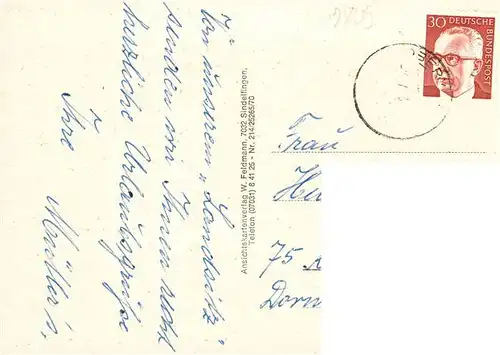 Von unserem "Landsitz"
senden wir Ihnen recht
herzliche Urlaubsgrüße
Ihre
Müller's.
Ansichtskartenverlag W. Feldmann, 7032 Sindelfingen,
Telefon (07031) 8 41 25 - Nr. 214/25265/70
30 DEUTSCHE
BUNDESPOST
Frau
75
Dorn